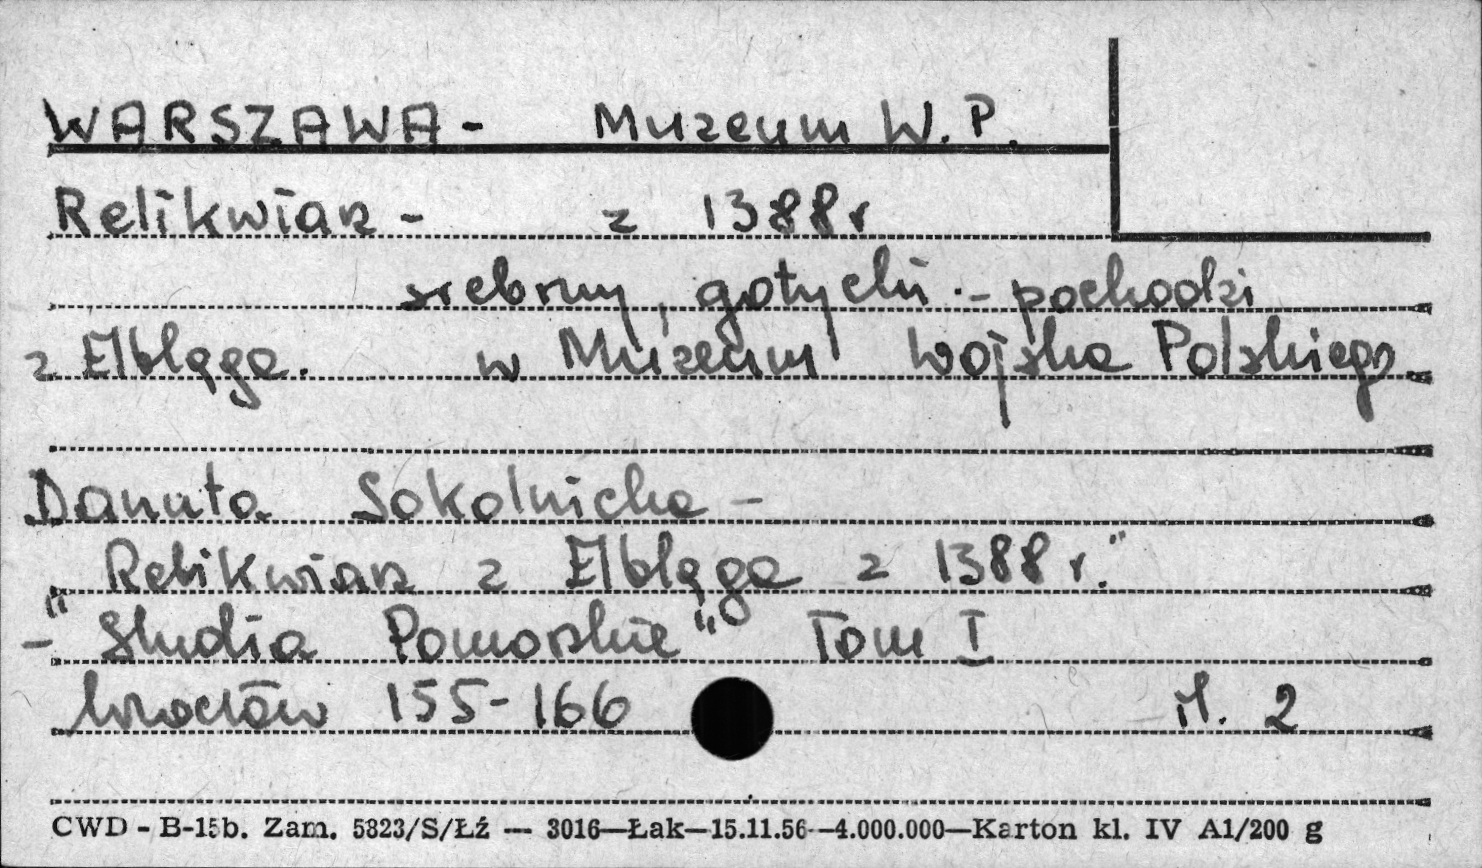 WARSZAWA - Muzeum W.P.
Relikwiarz - z 1388 r
srebrny, gotycki - pochodzi
z Elbląga. w Muzeum Wojska Polskiego
Danuta Sokolnicka -
Relikwiarz z Elbląga z 1388 r."
- "Studia Pomorskie" Tom I
Wrocław 155-166 il. 2
CWD - B-15b. Zam. 5823/S/Łź — 3016—Łak—15.11.56—4.000.000—Karton kl. IV A1/200 g